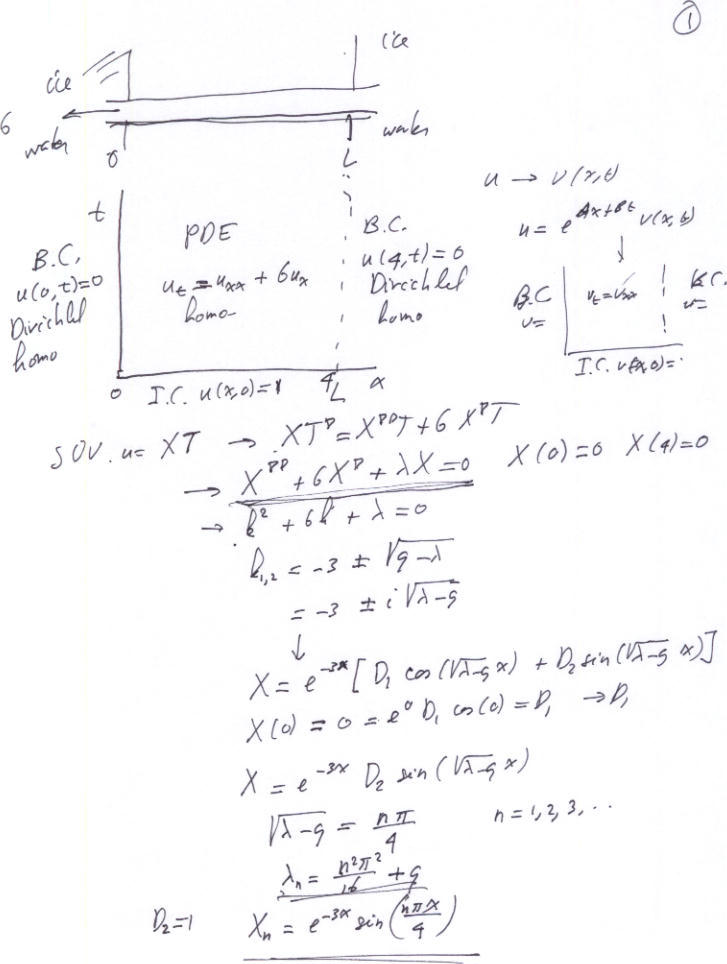 ①
ice
ice
6
water
water
0
L
t
PDE
u_t = u_xx + 6u_x
homo
B.C.
u(0,t)=0
Dirichlet
homo
B.C.
u(4,t)=0
Dirichlet
homo
0
I.C. u(x,0)=1
4
L
x
u → v(x,t)
u = e^{Ax+Bt} v(x,t)
↓
B.C
v=
v_t = v_xx
B.C.
v=
I.C. v(x,0)=
SOV. u = XT → XT' = X''T + 6X'T
→ X'' + 6X' + λX = 0 X(0)=0 X(4)=0
→ k² + 6k + λ = 0
k_{1,2} = -3 ± √(9-λ)
= -3 ± i√(λ-9)
↓
X = e^{-3x} [D₁ cos(√(λ-9) x) + D₂ sin(√(λ-9) x)]
X(0) = 0 = e⁰ D₁ cos(0) = D₁ → D₁
X = e^{-3x} D₂ sin(√(λ-9) x)
√(λ-9) = nπ/4 n = 1,2,3,..
λ_n = n²π²/16 + 9
D₂=1 X_n = e^{-3x} sin(nπx/4)